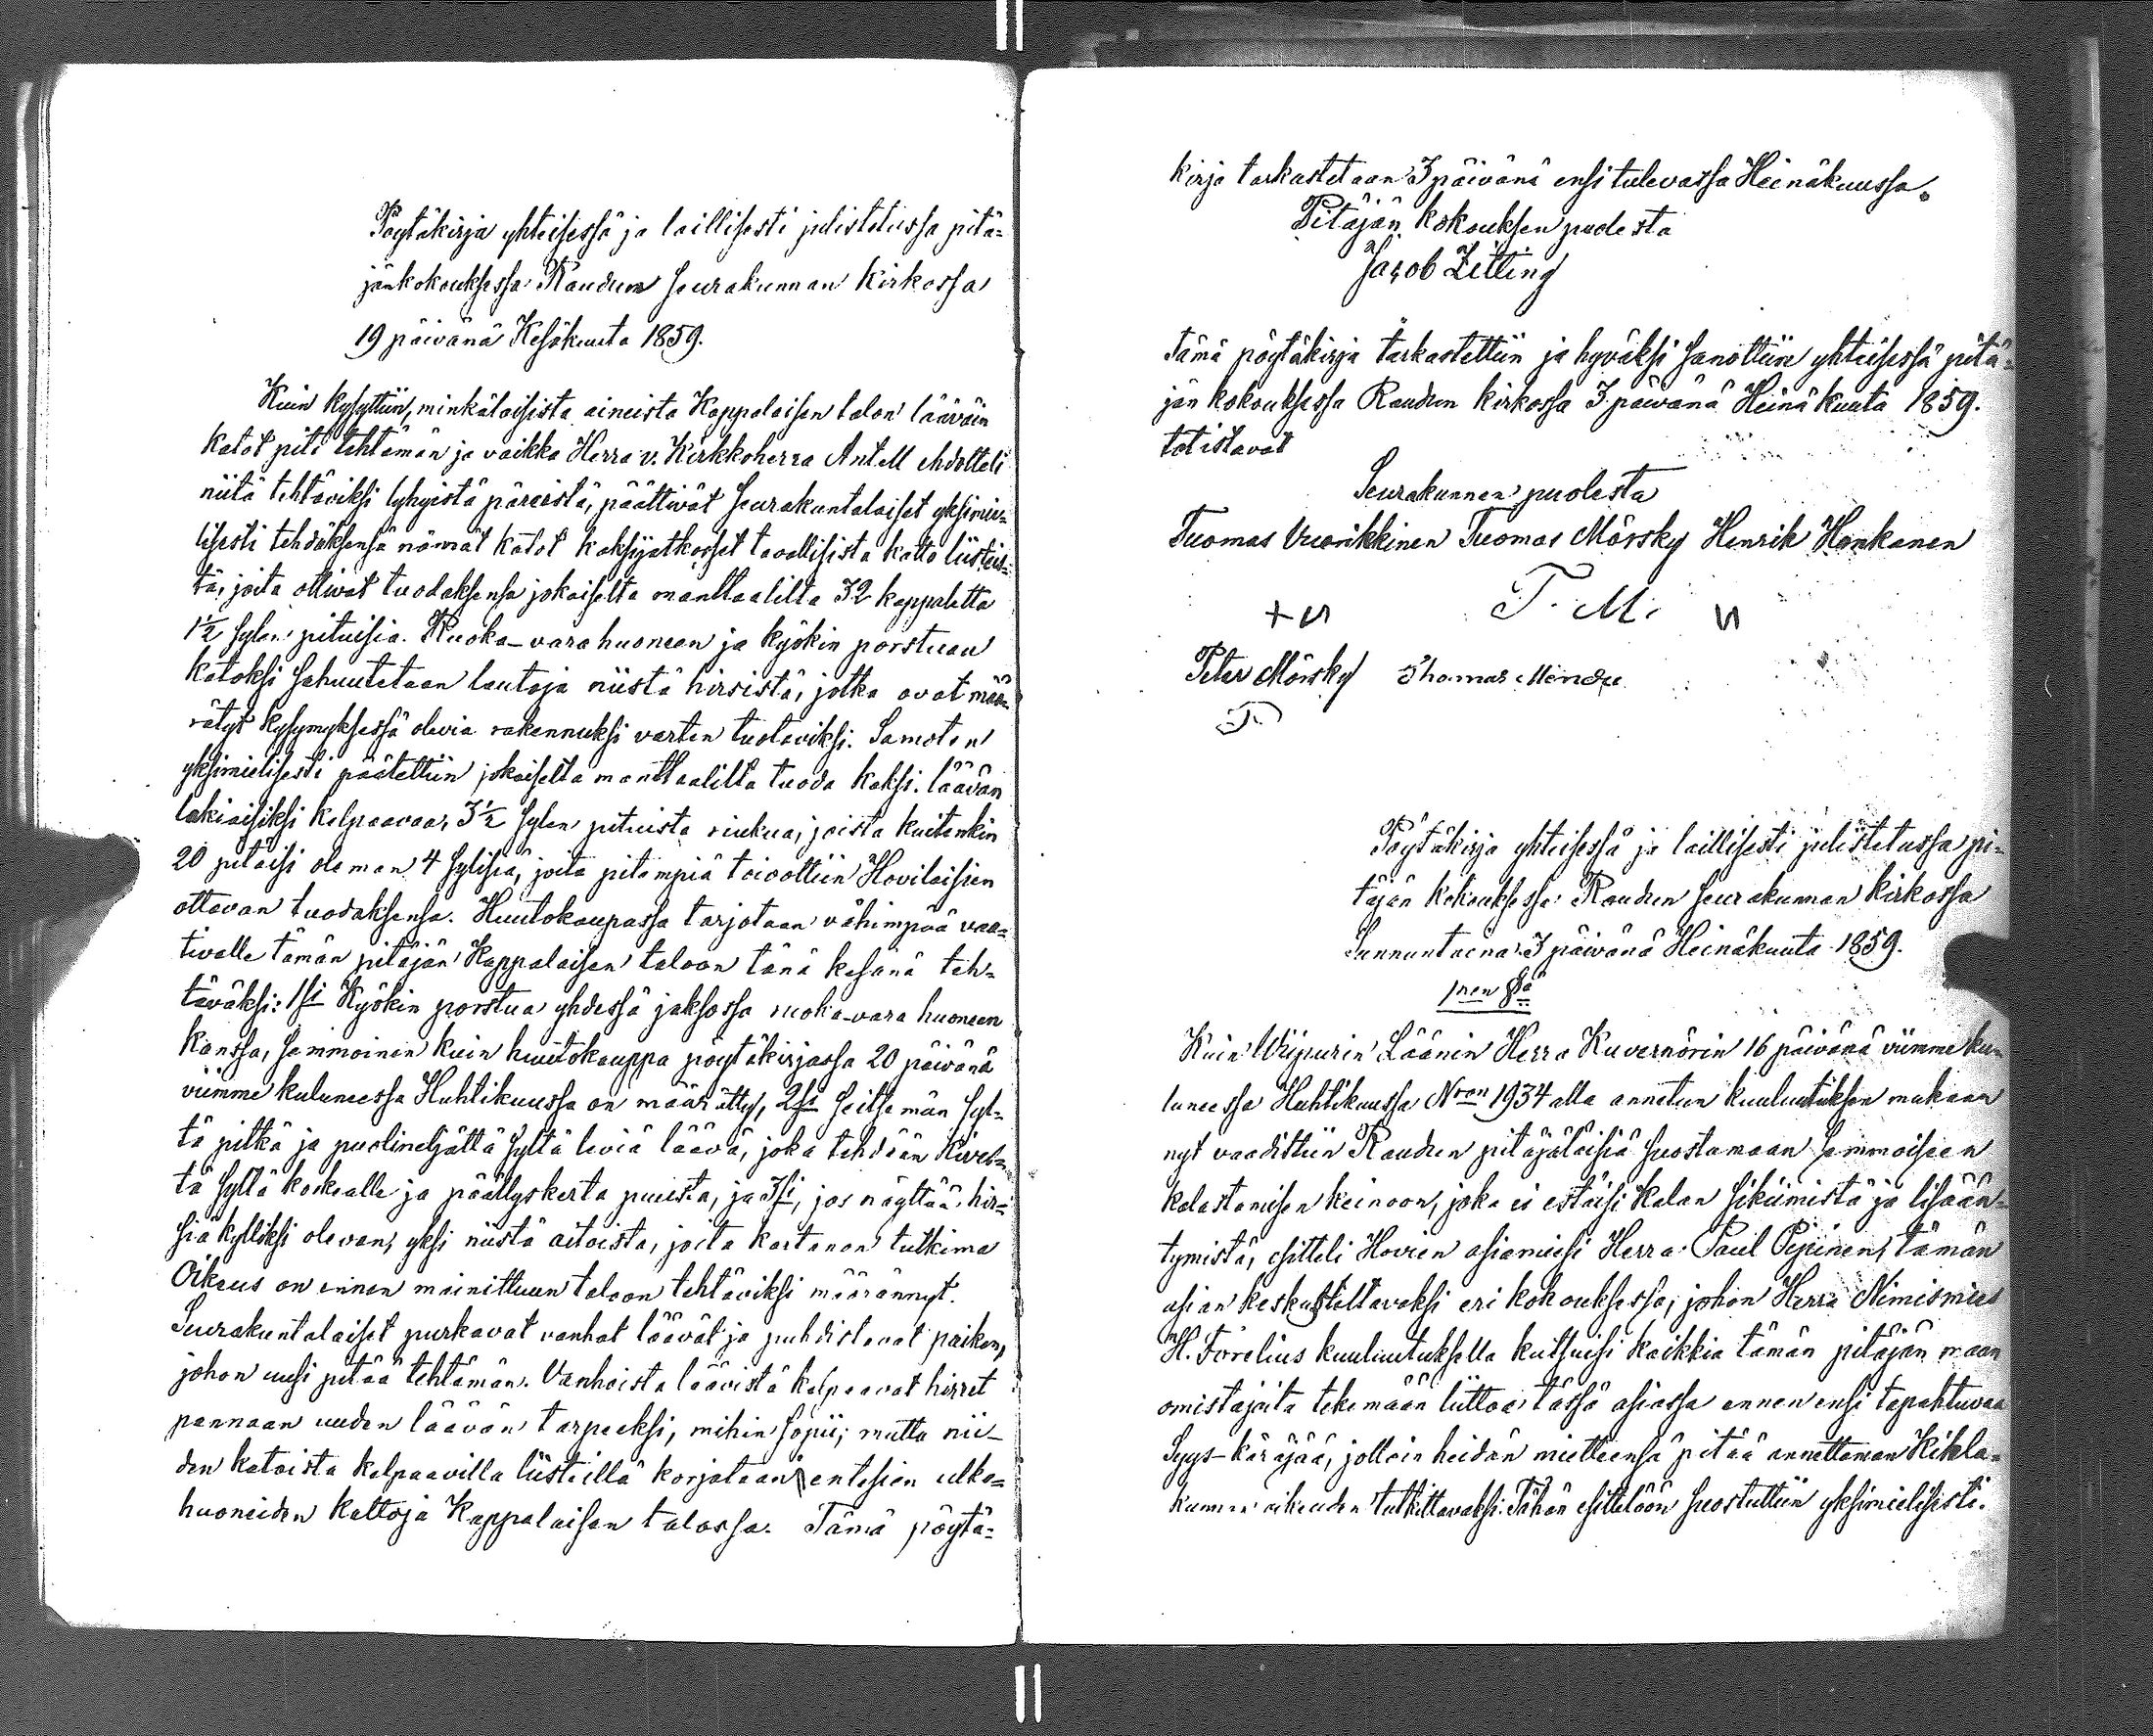 Pöytäkirja yhteisessä ja laillisesti julistetussa pitä-
jänkokouksessa Raudun seurakunnan kirkossa
19 päivänä Kesäkuuta 1859.
Kuin kysyttiin, minkälaisista aineista Kappalaisen talon lääväin
katot piti tehtämän ja vaikka Herra v. Kirkkoherra Antell ehdotteli
niitä tehtäviksi lyhyistä päreistä, päättivät seurakuntalaiset yksimie-
lisesti tehdäksensä nämät katot kaksijatkoiset tavallisista katto liisteis-
tä, joita ottivat tuodaksensa jokaiselta manttaalilta 32 kappaletta
1½ sylen pituisia. Ruoka-vara huoneen ja kyökin porstuan
katoksi sahuutetaan lautoja niistä hirsistä, jotka ovat mää-
rätyt kysymyksessä olevia rakennuksi varten tuotaviksi. Samoten
yksimielisesti päätettiin jokaiselta manttaalilta tuoda kaksi läävän
lakiaisiksi kelpaavaa, 3½ sylen pituista riukua, joista kuitenkin
20 pitäisi oleman 4 sylisiä, joita pitempiä toivottiin Hovilaisien
ottavan tuodaksensa. Huutokaupassa tarjotaan vähimpää vaa-
tivalle tämän pitäjän Kappalaisen taloon tänä kesänä teh-
täväksi: 1si Kyökin porstua yhdessä jaksossa ruoka-vara huoneen
kanssa, semmoinen kuin huutokauppa pöytäkirjassa 20 päivänä
viimme kuluneessa Huhtikuussa on määrätty, 2si seitsemän syl-
tä pitkä ja puolineljättä syltä leviä läävä, joka tehdään Kives-
tä syltä korkealle ja päällyskerta puusta, ja 3si, jos näyttää hir-
siä kylliksi olevan, yksi niistä aitoista, joita kartanon tutkima
Oikeus on ennen mainittuun taloon tehtäviksi määrännyt.
Seurakuntalaiset purkavat vanhat läävät ja puhdistavat paikan,
johon uusi pitää tehtämän. Vanhoista läävistä kelpaavat hirret
pannaan uuden läävän tarpeeksi, mihin sopii; mutta nii-
den katoista kelpaavilla liisteillä korjataan entisien ulko-
huoneiden kattoja Kappalaisen talossa. Tämä pöytä-
kirja tarkastetaan 3 päivänä ensi tulevassa Heinäkuussa.
Pitäjän kokouksen puolesta
Jacob Zitting
Tämä pöytäkirja tarkastettiin ja hyväksi sanottiin yhteisessä pitä-
jän kokouksessa Raudun kirkossa 3 päivänä Heinäkuuta 1859.
totistavat
Seurakunnan puolesta
Tuomas Vuorikkinen Tuomas Mörsky Henrik Honkanen
T. M.
Peter Mörsky Thomas Mändy
Pöytäkirja yhteisessä ja laillisesti julistetussa pi-
täjän kokouksessa Raudun seurakunnan kirkossa
Sunnuntaina 3 päivänä Heinäkuuta 1859.
1nen §lä
Kuin Wiipurin Läänin Herra Kuvernörin 16 päivänä viimme ku-
luneessa Huhtikuussa Nron 1934 alla annetun kuulutuksen mukaan
nyt vaadittiin Raudun pitäjäläisiä suostumaan semmoiseen
kalastamisen keinoon, joka ei estäisi kalan sikiimistä ja lisään-
tymistä, esitteli Hovien asiamiesi Herra Paul Pejinen, tämän
asian keskusteltavaksi eri kokouksessa, johon Herra Nimismies
H. Forelius kuulutuksella kutsuisi kaikkia tämän pitäjän maan
omistajoita tekemään liittoa tässä asiassa ennen ensi tapahtuvaa
Syys-käräjää, jolloin heidän mietteensä pitää annettaman Kihla-
kunnan oikeuden tutkittavaksi. Tähän esittelöön suostuttiin yksimielisesti.